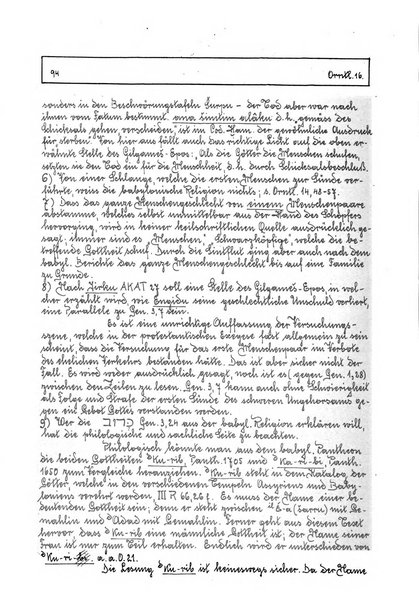 94 Orntl. 16.
sonders in den Beschwörungstafeln Šurpu - der Tod aber war nach
ihnen vom Fatum bestimmt. ana šimtim alâku d.h. "gemäss des
Schicksals gehen, verscheiden", ist im Cod. Ham. der gewöhnliche Ausdruck
für "sterben". Von hier aus fällt auch das richtige Licht auf die oben er-
wähnte Stelle des Gilgameš-Epos: "Als die Götter die Menschen schufen,
setzten sie den Tod ein für die Menschheit" d.h. durch Schicksalsbeschluß.
6) Von einer Schlange, welche die ersten Menschen zur Sünde ver-
führte, weiss die babylonische Religion nichts; s. Orntl. 14, 48-57.
7) Dass das ganze Menschengeschlecht von einem Menschenpaare
abstamme, welches selbst unmittelbar aus der Hand des Schöpfers
hervorging, wird in keiner keilschriftlichen Quelle ausdrücklich ge-
sagt; immer sind es "Menschen", "Schwarzköpfige", welche die be-
treffende Gottheit schuf. Durch die Sintflut ging aber auch nach dem
babyl. Berichte das ganze Menschengeschlecht bis auf eine Familie
zu Grunde.
8) Nach Zirku AKAT 27 soll eine Stelle des Gilgameš-Epos, in wel-
cher erzählt wird wie Engidu seine geschlechtliche Unschuld verliert,
eine Parallele zu Gen. 3,7 sein.
Es ist eine unrichtige Auffassung der Versuchungs-
szene, welche in der protestantischen Exegese fast allgemein zu sein
scheint, dass die Versuchung für das erste Menschenpaar im Verbote
des ehelichen Verkehres bestanden hätte. Das ist aber sicher nicht der
Fall. Es wird weder ausdrücklich gesagt, noch ist es (gegen Gen. 1,28)
zwischen den Zeilen zu lesen. Gen. 3,7 kann auch ohne Schwierigkeit
als Folge und Strafe der ersten Sünde des schweren Ungehorsams ge-
gen ein Gebot Gottes verstanden werden.
9) Wer die כרוב Gen. 3,24 aus der babyl. Religion erklären will,
hat die philologische und sachliche Seite zu beachten.
Philologisch könnte man aus dem babyl. Pantheon
die beiden Gottheiten ᵈKu-rib, Panth. 1705 und ᵈKu-ri-bi, Panth.
1650 zum Vergleiche heranziehen. ᵈKu-rib steht in dem Katalog der
Götter, welche in den verschiedenen Tempeln Assyriens und Baby-
loniens verehrt werden, III R 66, 26 f. Es muss der Name einer be-
deutenden Gottheit sein; denn er steht zwischen (šarru) mit Ge-
mahlin und ᵈAdad mit Gemahlin. Ferner geht aus diesem Text
hervor dass ᵈKu-rib eine männliche Gottheit ist; der Name seiner
Frau ist nur zum Teil erhalten. Endlich wird er unterschieden von
ᵈKu-ri- a. a. O. 21.
Die Lesung ᵈKu-rib ist keineswegs sicher. Da der Name